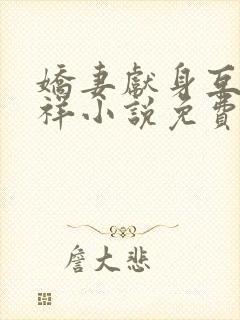 嬌妻獻身互
祥小說免費
詹大悲